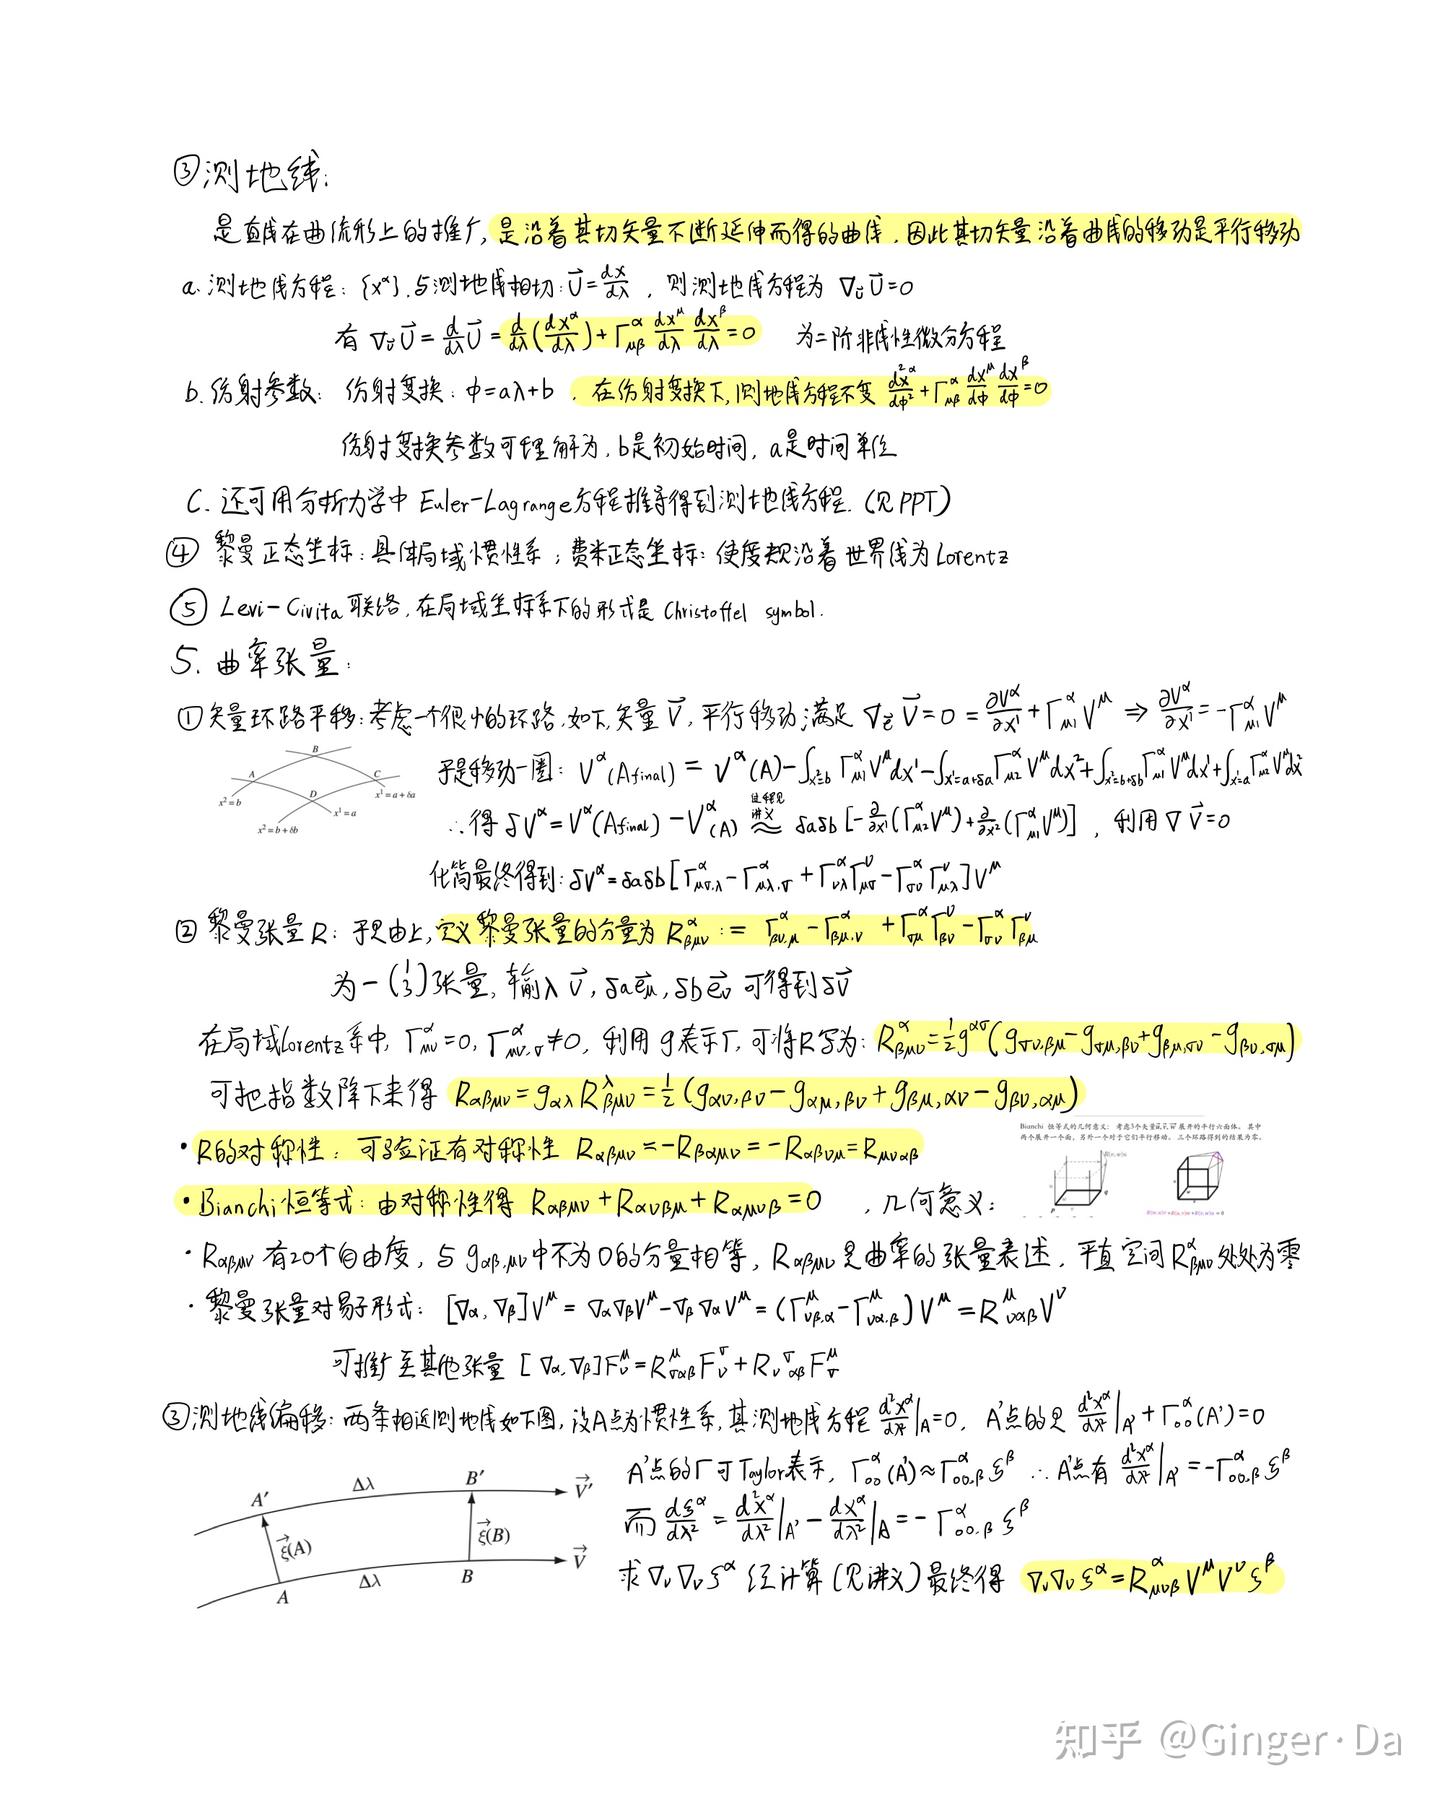 ③测地线:
是直线在曲流形上的推广, 是沿着其切矢量不断延伸而得的曲线, 因此其切矢量沿着曲线的移动是平行移动
a. 测地线方程: {x^α}, 与测地线相切: U⃗ = dx/dλ , 则测地线方程为 ∇_U⃗ U⃗ = 0
有 ∇_U⃗ U⃗ = d/dλ U⃗ = d/dλ(dx^α/dλ) + Γ^α_μβ dx^μ/dλ dx^β/dλ = 0 为二阶非线性微分方程
b. 仿射参数: 仿射变换: φ = aλ + b . 在仿射变换下, 测地线方程不变 d²x^α/dφ² + Γ^α_μβ dx^μ/dφ dx^β/dφ = 0
仿射变换参数可理解为, b是初始时间, a是时间单位
C. 还可用分析力学中 Euler-Lagrange方程推导得到测地线方程. (见PPT)
④ 黎曼正态坐标: 具体局域惯性系; 费米正态坐标: 使度规沿着世界线为Lorentz
⑤ Levi-Civita 联络, 在局域坐标系下的形式是 Christoffel symbol.
5. 曲率张量:
①矢量环路平移: 考虑一个很小的环路, 如下, 矢量 V⃗, 平行移动满足 ∇_e⃗ V⃗ = 0 = ∂V^α/∂x¹ + Γ^α_μ1 V^μ ⇒ ∂V^α/∂x¹ = -Γ^α_μ1 V^μ
A B C D x²=b x¹=a+δa x¹=a x²=b+δb
于是移动一圈: V^α(A_final) = V^α(A) - ∫_{x²=b} Γ^α_μ1 V^μ dx¹ - ∫_{x¹=a+δa} Γ^α_μ2 V^μ dx² + ∫_{x²=b+δb} Γ^α_μ1 V^μ dx¹ + ∫_{x¹=a} Γ^α_μ2 V^μ dx²
∴ 得 δV^α = V^α(A_final) - V^α(A) ≈ (过程见讲义) δaδb [-∂/∂x¹(Γ^α_μ2 V^μ) + ∂/∂x²(Γ^α_μ1 V^μ)] , 利用 ∇V⃗ = 0
化简最终得到: δV^α = δaδb [Γ^α_μσ,λ - Γ^α_μλ,σ + Γ^α_νλ Γ^ν_μσ - Γ^α_σν Γ^ν_μλ] V^μ
② 黎曼张量 R: 于是由上, 定义黎曼张量的分量为 R^α_βμν := Γ^α_βν,μ - Γ^α_βμ,ν + Γ^α_σμ Γ^ν_βν - Γ^α_σν Γ^ν_βμ
为一(1 3)张量, 输入 v⃗, δa e⃗_μ, δb e⃗_ν 可得到 δv⃗
在局域Lorentz系中, Γ^α_μν = 0, Γ^α_μν,σ ≠ 0, 利用 g表示Γ, 可将R写为: R^α_βμν = ½g^ασ (g_σν,βμ - g_σμ,βν + g_βμ,σν - g_βν,σμ)
可把指数降下来得 R_αβμν = g_αλ R^λ_βμν = ½ (g_αν,βν - g_αμ,βν + g_βμ,αν - g_βν,αμ)
Bianchi 恒等式的几何意义: 考虑3个矢量u⃗,v⃗,w⃗ 展开的平行六面体。 其中
两个展开一个面, 另外一个对于它们平行移动。 三个环路得到的结果为零。
· R的对称性: 可验证有对称性 R_αβμν = -R_βαμν = -R_αβνμ = R_μναβ
· Bianchi恒等式: 由对称性得 R_αβμν + R_ανβμ + R_αμνβ = 0 , 几何意义:
· R_αβμν 有20个自由度, 与 g_αβ,μν中不为0的分量相等, R_αβμν是曲率的张量表述, 平直空间 R^α_βμν处处为零
· 黎曼张量对易子形式: [∇_α, ∇_β]V^μ = ∇_α∇_βV^μ - ∇_β∇_αV^μ = (Γ^μ_νβ,α - Γ^μ_να,β)V^μ = R^μ_ναβ V^ν
可推广至其他张量 [∇_α, ∇_β]F^μ_ν = R^μ_σαβ F^σ_ν + R_ν^σ_αβ F^μ_σ
③测地线偏移: 两条相近测地线如下图, 设A点为惯性系, 其测地线方程 d²x^α/dλ²|_A = 0, A'点的是 d²x^α/dλ²|_A' + Γ^α_00(A') = 0
A'点的Γ可Taylor表示, Γ^α_00(A') ≈ Γ^α_00,β ξ^β ∴ A'点有 d²x^α/dλ²|_A' = -Γ^α_00,β ξ^β
而 dξ^α/dλ² = d²x^α/dλ²|_A' - dx^α/dλ²|_A = -Γ^α_00,β ξ^β
求 ∇_v∇_v ξ^α 经计算(见讲义)最终得 ∇_v∇_v ξ^α = R^α_μνβ V^μ V^ν ξ^β
A' Δλ B' V⃗'
ξ⃗(A) ξ⃗(B)
A Δλ B V⃗
知乎 @Ginger·Da